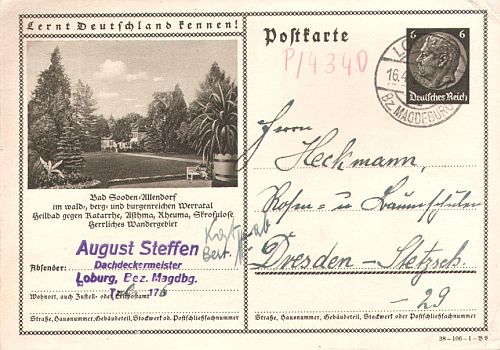 Lernt Deutschland kennen!
Postkarte
P/4340
6 6
Deutsches Reich
LO
16.4
Bz. MAGDEBURG
Bad Sooden-Allendorf
im wald-, berg- und burgenreichen Werratal
Heilbad gegen Katarrhe, Asthma, Rheuma, Skrofulose
Herrliches Wandergebiet
Herrn
Heckmann,
Rosen- u Baumschulen
Dresden - Stetzsch.
-29
August Steffen
Dachdeckermeister
Absender:
Loburg, Bez. Magdbg.
Wohnort, auch Zustell- oder Leitpostamt
Straße, Hausnummer, Gebäudeteil, Stockwerk od. Postschließfachnummer
Straße, Hausnummer, Gebäudeteil, Stockwerk oder Postschließfachnummer
38-106-1-B9